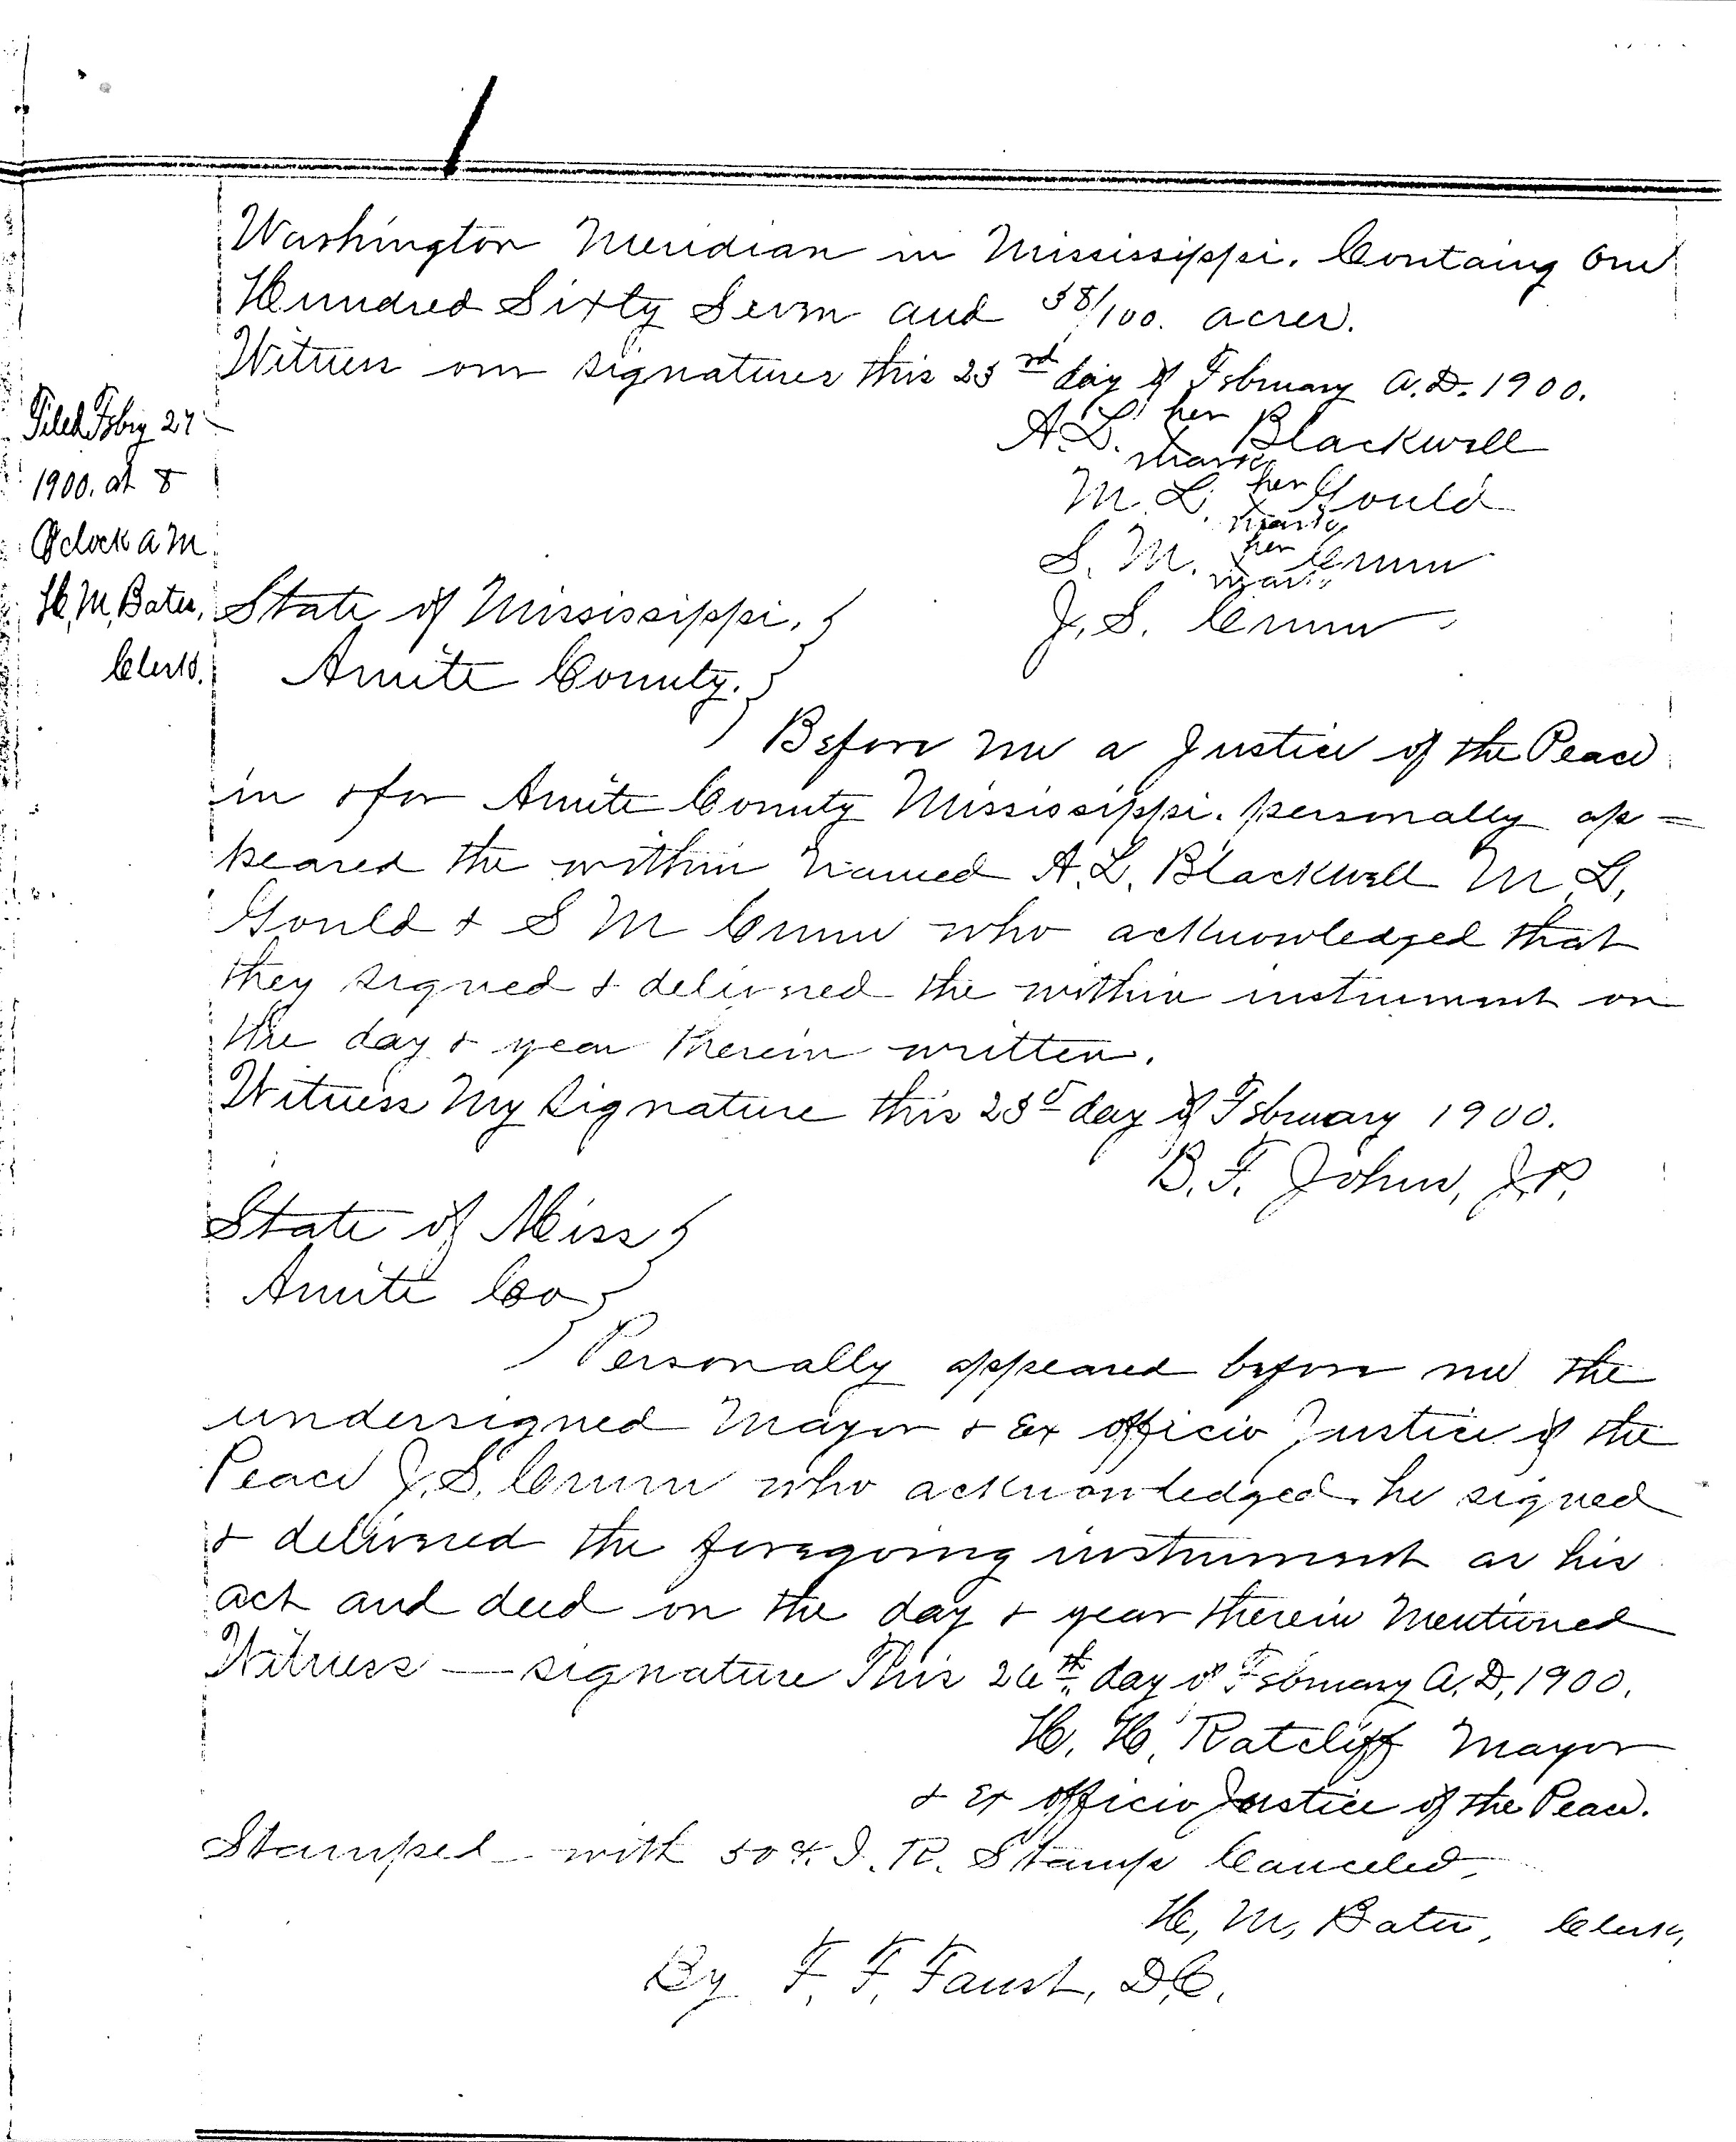 Washington Meridian in Mississippi. Containg One
Hundred Sixty Seven and 58/100. acres.
Witness our signatures this 23rd day of February A.D. 1900.
her
A. L. X Blackwell
mark
her
M. L. X Gould
mark
her
S. M. X Crum
mark
J. S. Crum
Filed Feby 27
1900. at 8
O'clock a M.
H, M, Bates,
Clerk.
State of Mississippi.
Amite County.
Before me a Justice of the Peace
in & for Amite County Mississippi. personally ap=
peared the within named A. L. Blackwell M L,
Gould & S M Crum who acknowledged that
they signed & delivered the within instrument on
the day & year therein written.
Witness My Signature this 23d day of February 1900.
B. F. Johns, J.P.
State of Miss
Amite Co
Personally appeared before me the
undersigned Mayor & Ex officio Justice of the
Peace J. S. Crum who acknowledged he signed
& delivered the foregoing instrument as his
act and deed on the day & year therein mentioned
Witness — signature This 26th day of February A. D, 1900.
H. H. Ratcliff Mayor
& Ex officio Justice of the Peace.
Stamped with 50¢. I. R. Stamp Canceled
H, M, Bates, Clerk,
By F. F. Faust, D.C.